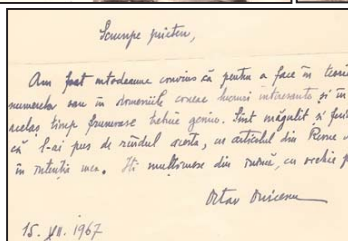 Scumpe prieten,
Am fost întodeauna convins că pentru a face în teoria
numerelor sau în domeniile conexe lucruri interesante și în
acelaș timp frumoase trebuie geniu. Sînt măgulit și
că l-ai pus de rândul acesta, cu articolul din Revue
în intenția mea. Îți mulțumesc din inimă, cu vechie
Octav Onicescu
15. XII. 1967